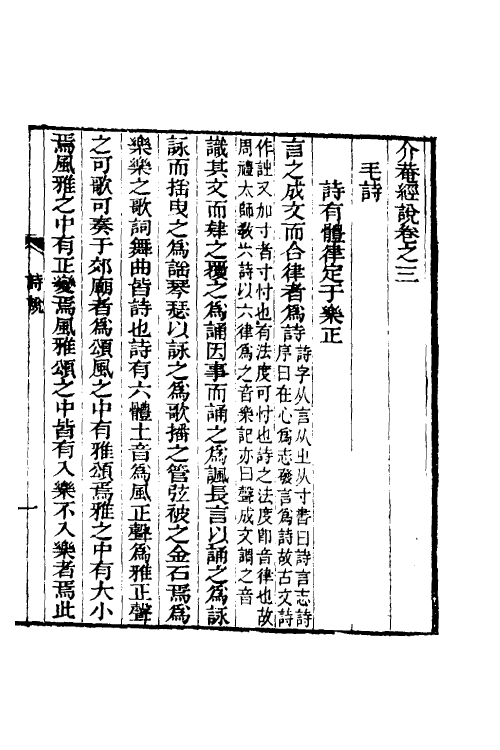 介菴經說卷之三
毛詩
詩有體律定于樂正
言之成文而合律者為詩詩字从言从㞢从寸書曰詩言志詩
序曰在心為志發言為詩故古文詩
作訨又加寸者寸忖也有法度可忖也詩之法度卽音律也故
周禮太師敎六詩以六律為之音樂記亦曰聲成文謂之音
識其文而肄之覆之為誦因事而誦之為諷長言以誦之為詠
詠而括曳之為謡琴瑟以詠之為歌播之管弦被之金石焉為
樂樂之歌詞舞曲皆詩也詩有六體土音為風正聲為雅正聲
之可歌可奏于郊廟者為頌風之中有雅頌焉雅之中有大小
焉風雅之中有正變焉風雅頌之中皆有入樂不入樂者焉此
詩說
一